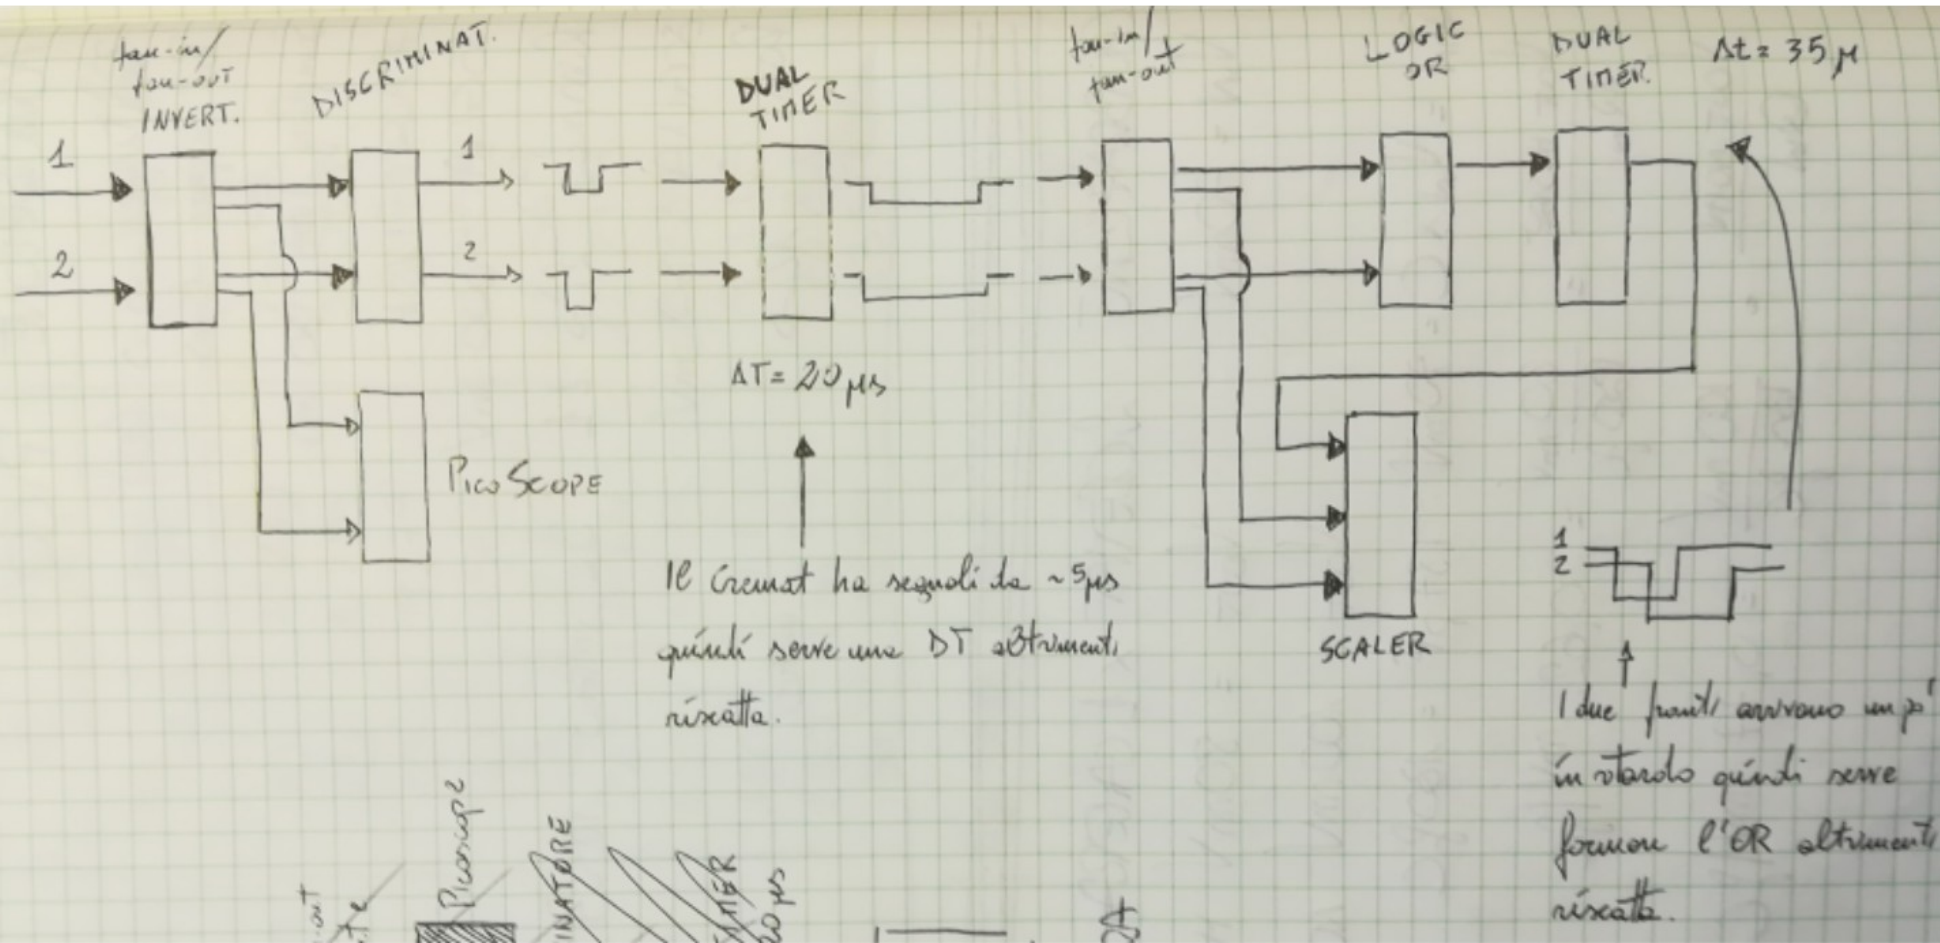 fan-in/
fan-out
INVERT.
DISCRIMINAT.
DUAL
TIMER
fan-in/
fan-out
LOGIC
OR
DUAL
TIMER
Δt = 35 μ
1
2
1
2
ΔT = 20 μs
PicoScope
Il Cremat ha segnali da ~5μs
quindi serve una DT altrimenti
riscatta.
SCALER
1
2
I due fronti arrivano un po'
in ritardo quindi serve
formare l'OR altrimenti
riscatta.
Picoscop2
INATORE
20 μs